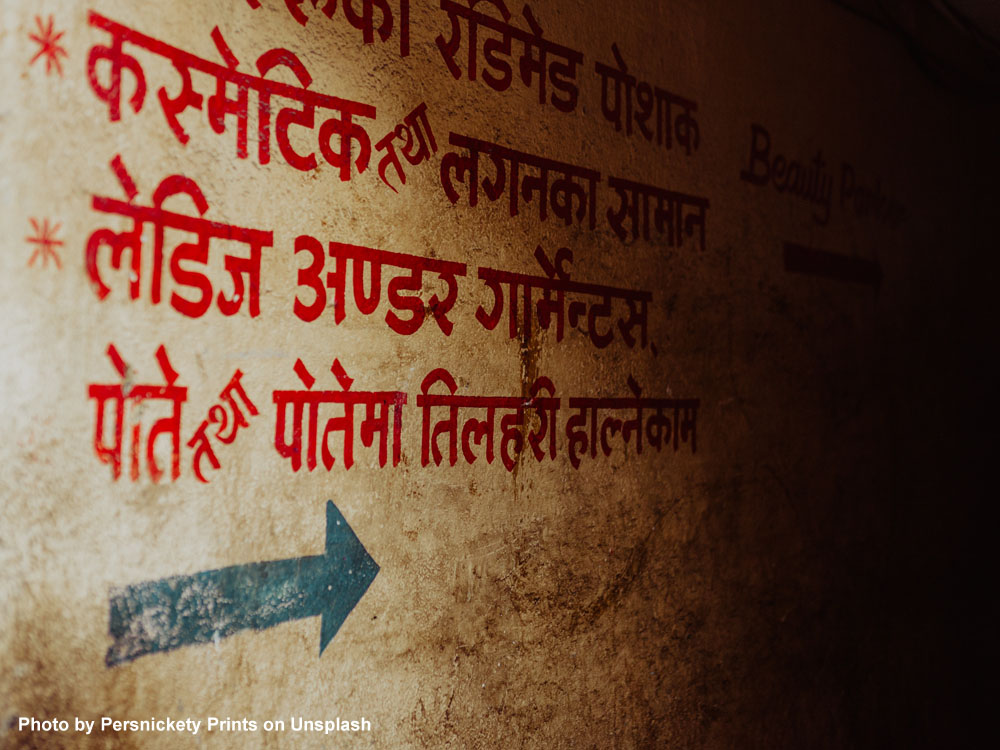 रेडिमेड पोशाक
* कस्मेटिक तथा लगनका सामान
Beauty
* लेडिज अण्डर गार्मेन्टस्
पोते तथा पोतेमा तिलहरी हाल्नेकाम
Photo by Persnickety Prints on Unsplash